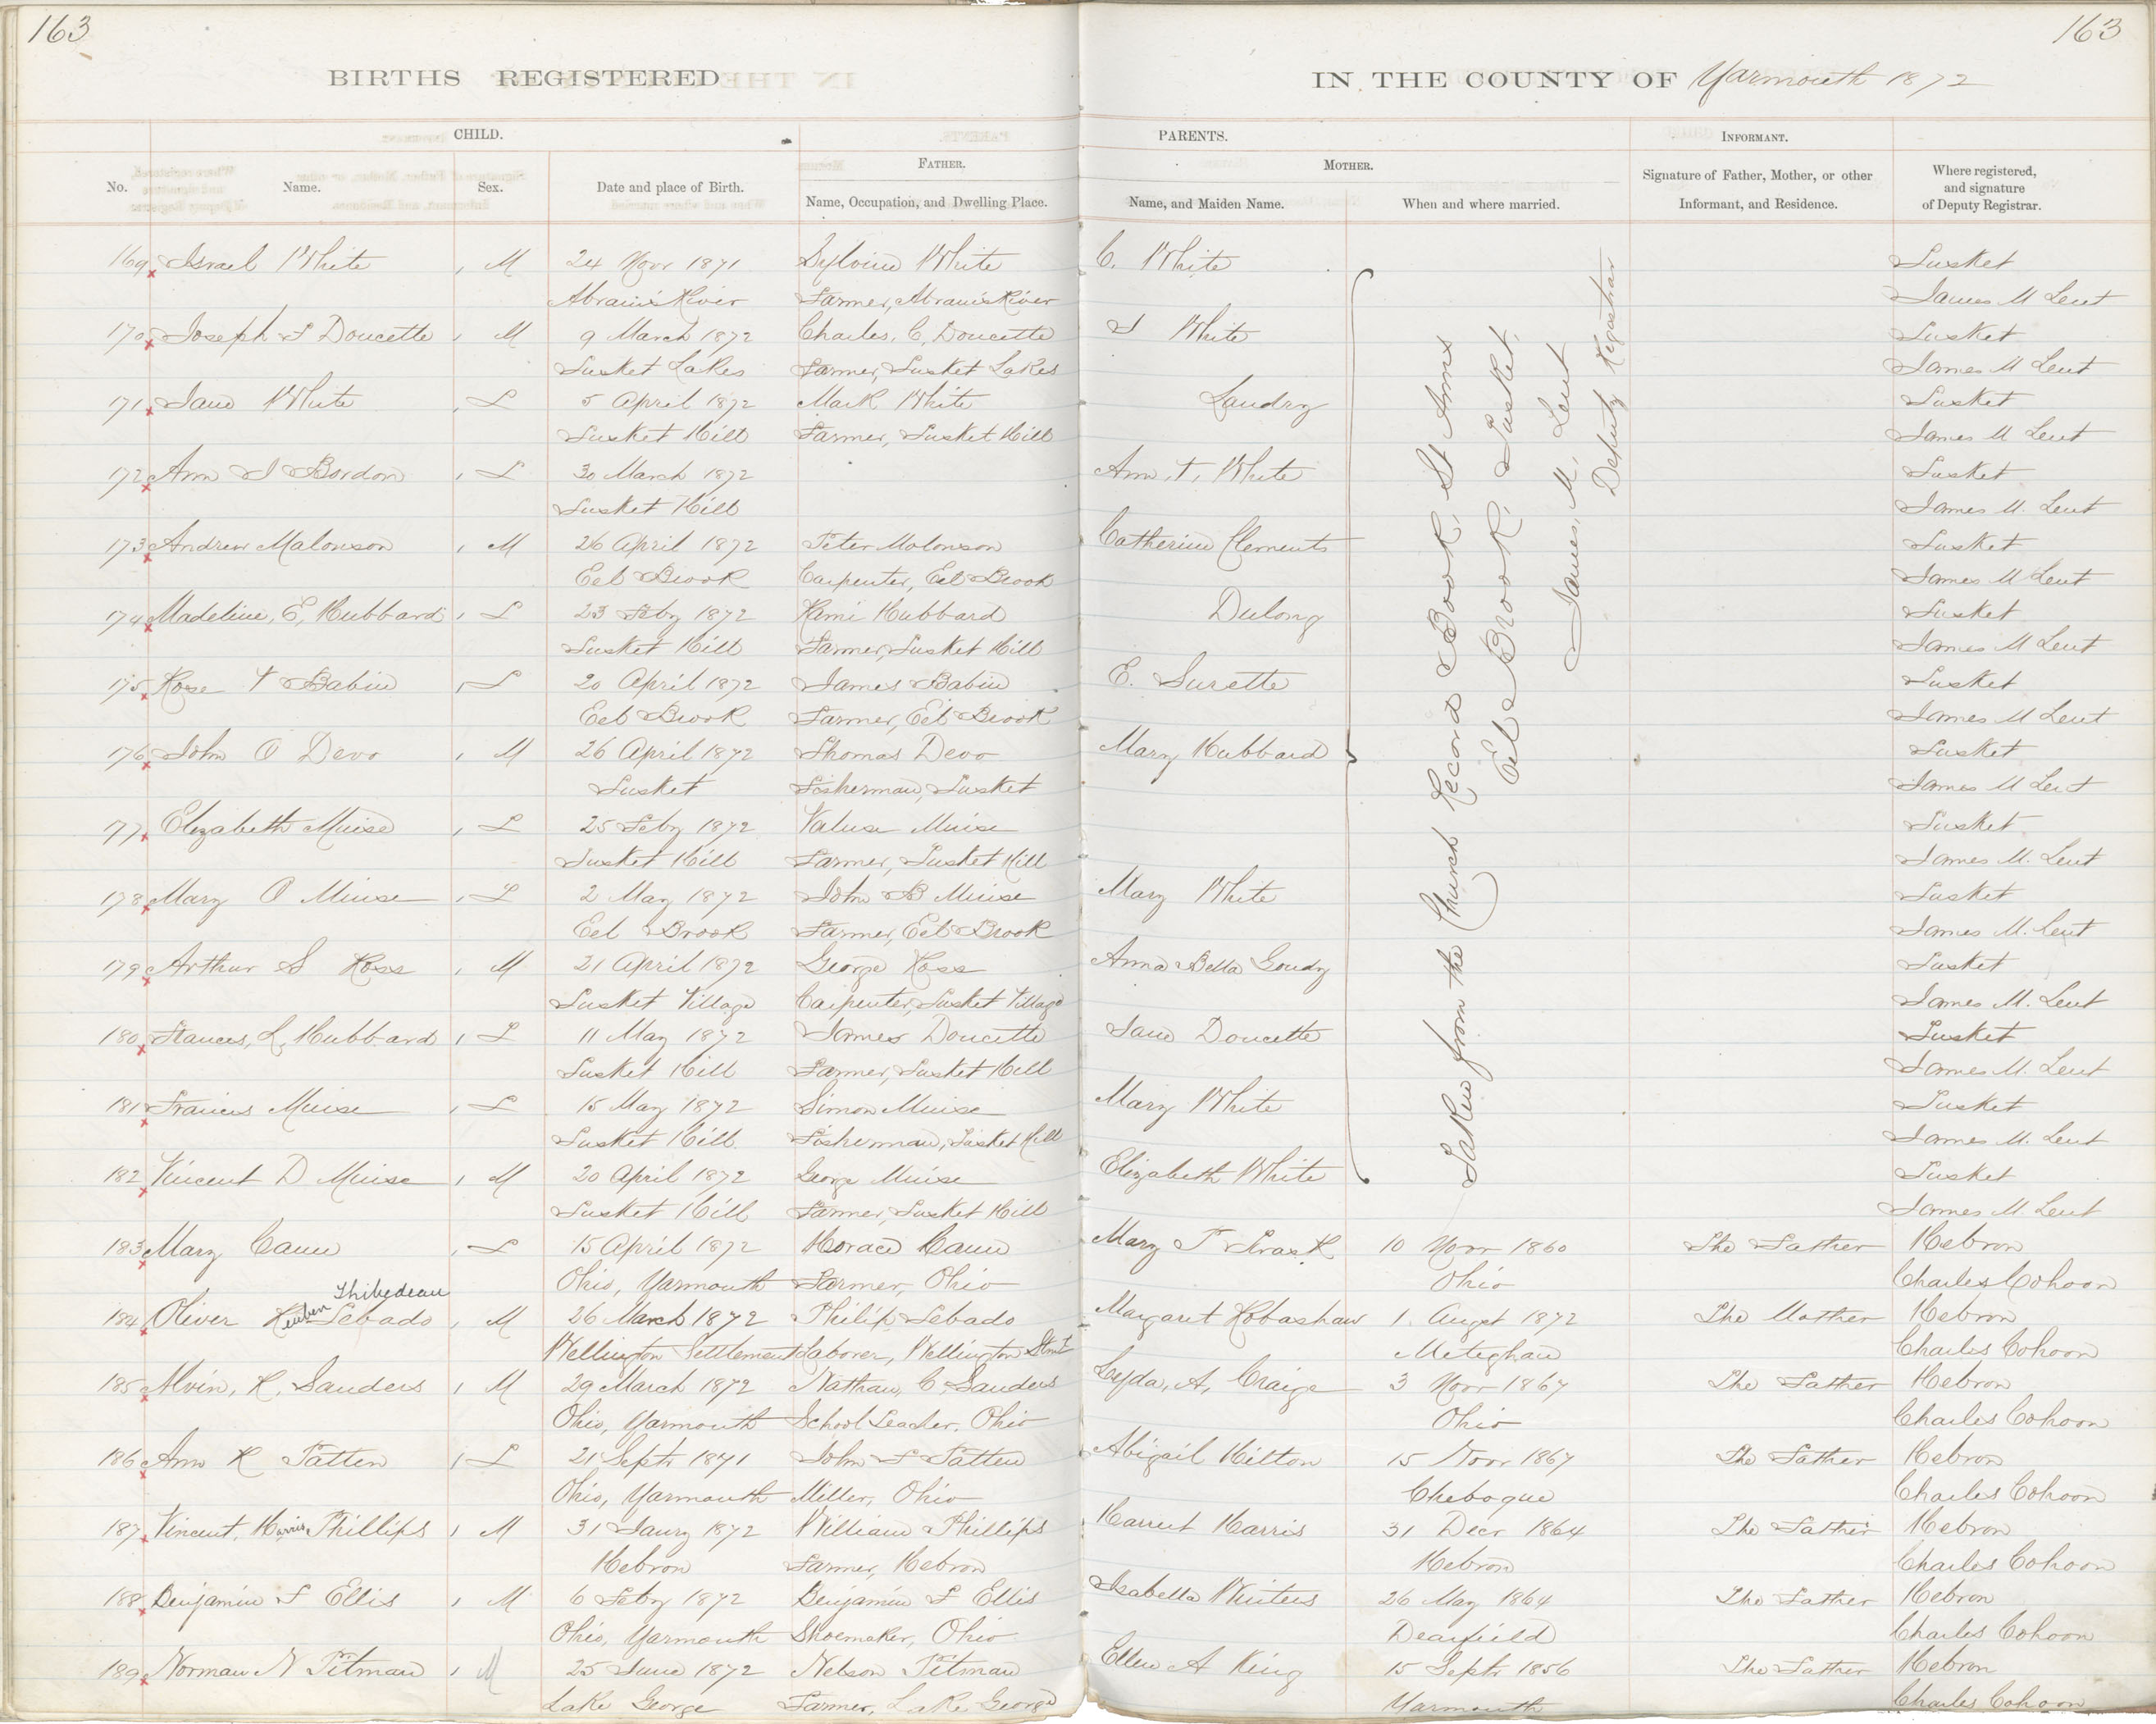 163
163
BIRTHS REGISTERED
IN THE COUNTY OF Yarmouth 1872
CHILD.
PARENTS.
INFORMANT.
FATHER.
MOTHER.
No.
Name.
Sex.
Date and place of Birth.
Name, Occupation, and Dwelling Place.
Name, and Maiden Name.
When and where married.
Signature of Father, Mother, or other
Informant, and Residence.
Where registered,
and signature
of Deputy Registrar.
169 Israel White , M 24 Novr 1871 White C. White Tusket
Abram's River Farmer, Abram's River James M Lent
170 Joseph F Doucette , M 9 March 1872 Charles, C, Doucette White Tusket
Tusket Lakes Farmer, Tusket Lakes James M Lent
171 Jane White , F 5 April 1872 Mark White Landry Tusket
Tusket Hill Farmer, Tusket Hill James M Lent
172 Ann Bordon , F 30 March 1872 Ann, T, White Tusket
Tusket Hill James M. Lent
173 Andrew Malonson , M 26 April 1872 Peter Molonson Catherine Clements Tusket
Eel Brook Carpenter, Eel Brook James M Lent
174 Madeline, E, Hubbard , F 23 Feby 1872 Remi Hubbard Dulong Tusket
Tusket Hill Farmer, Tusket Hill James M Lent
175 Rose T Babin , F 20 April 1872 James Babin E. Surette Tusket
Eel Brook Farmer, Eel Brook James M Lent
176 John O Devo , M 26 April 1872 Thomas Devo Mary Hubbard Tusket
Tusket Fisherman, Tusket James M Lent
177 Elizabeth Muise , F 25 Feby 1872 Muise Tusket
Tusket Hill Farmer, Tusket Hill James M. Lent
178 Mary O Muise , F 2 May 1872 John B Muise Mary White Tusket
Eel Brook Farmer, Eel Brook James M. Lent
179 Arthur S Ross , M 21 April 1872 George Ross Anna Bella Goudy Tusket
Tusket Village Carpenter, Tusket Village James M. Lent
180 Frances, L, Hubbard , F 11 May 1872 James Doucette Jane Doucette Tusket
Tusket Hill Farmer, Tusket Hill James M. Lent
181 Francis Muise , F 15 May 1872 Simon Muise Mary White Tusket
Tusket Hill. Fisherman, Tusket Hill James M. Lent
182 Vincent D Muise , M 20 April 1872 George Muise Elizabeth White Tusket
Tusket Hill Farmer, Tusket Hill James M. Lent
Taken from the Church Record Book, St Anns
Eel Brook, Tusket,
James, M, Lent
Deputy Registrar
183 Mary Cann , F 15 April 1872 Horace Cann Mary T Trask 10 Novr 1860 The Father Hebron
Ohio, Yarmouth Farmer, Ohio Ohio Charles Cohoon
Thibedeau
184 Oliver Reuben Tebado , M 26 March 1872 Philip Tebado Margaret Robashaw 1. Augst 1872 The Mother Hebron
Wellington Settlement Laborer, Wellington Stmt Meteghan Charles Cohoon
185 Alvin, R, Sanders , M 29 March 1872 Nathan, C, Sanders Lyda, A, Craige 3 Novr 1867 The Father Hebron
Ohio, Yarmouth School Teacher, Ohio Ohio Charles Cohoon
186 Ann R Patten , F 21 Septr 1871 John F Patten Abigail Hilton 15 Novr 1867 The Father Hebron
Ohio, Yarmouth Miller, Ohio Cheboque Charles Cohoon
187 Vincent, Harris Phillips , M 31 Jany 1872 William Phillips Harriet Harris 31 Decr 1864 The Father Hebron
Hebron Farmer, Hebron Hebron Charles Cohoon
188 Benjamin F Ellis , M 6 Feby 1872 Benjamin F Ellis Isabella Winters 26 May 1864 The Father Hebron
Ohio, Yarmouth Shoemaker, Ohio Dearfield Charles Cohoon
189 Norman N Pitman , M 25 June 1872 Nelson Pitman Ellen A King 15 Septr 1856 The Father Hebron
Lake George Farmer, Lake George Yarmouth Charles Cohoon